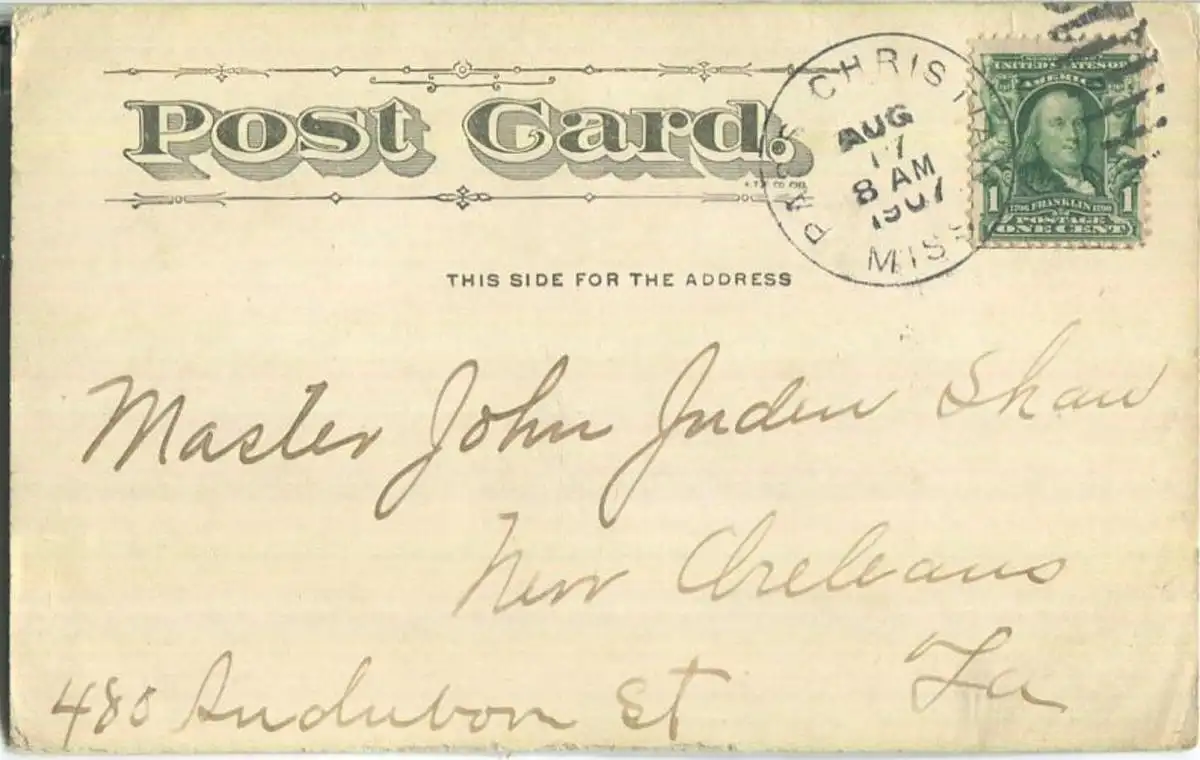 Post Card.
PASS CHRISTIAN
AUG
17
8 AM
1907
MISS
UNITED STATES OF
AMERICA
1 1
FRANKLIN
POSTAGE
ONE CENT
THIS SIDE FOR THE ADDRESS
Master John Juden Shaw
New Orleans
La
480 Audubon St